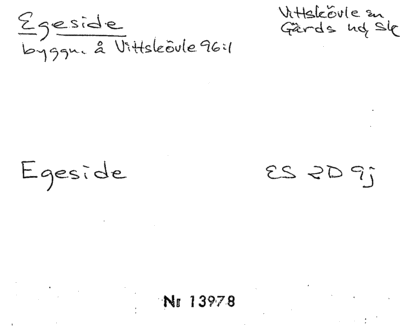 Egeside
byggn. å Vittskövle 96:1
Vittskövle sn
Gärds hd Sk
Egeside
ES 2D 9j
Nr 13978